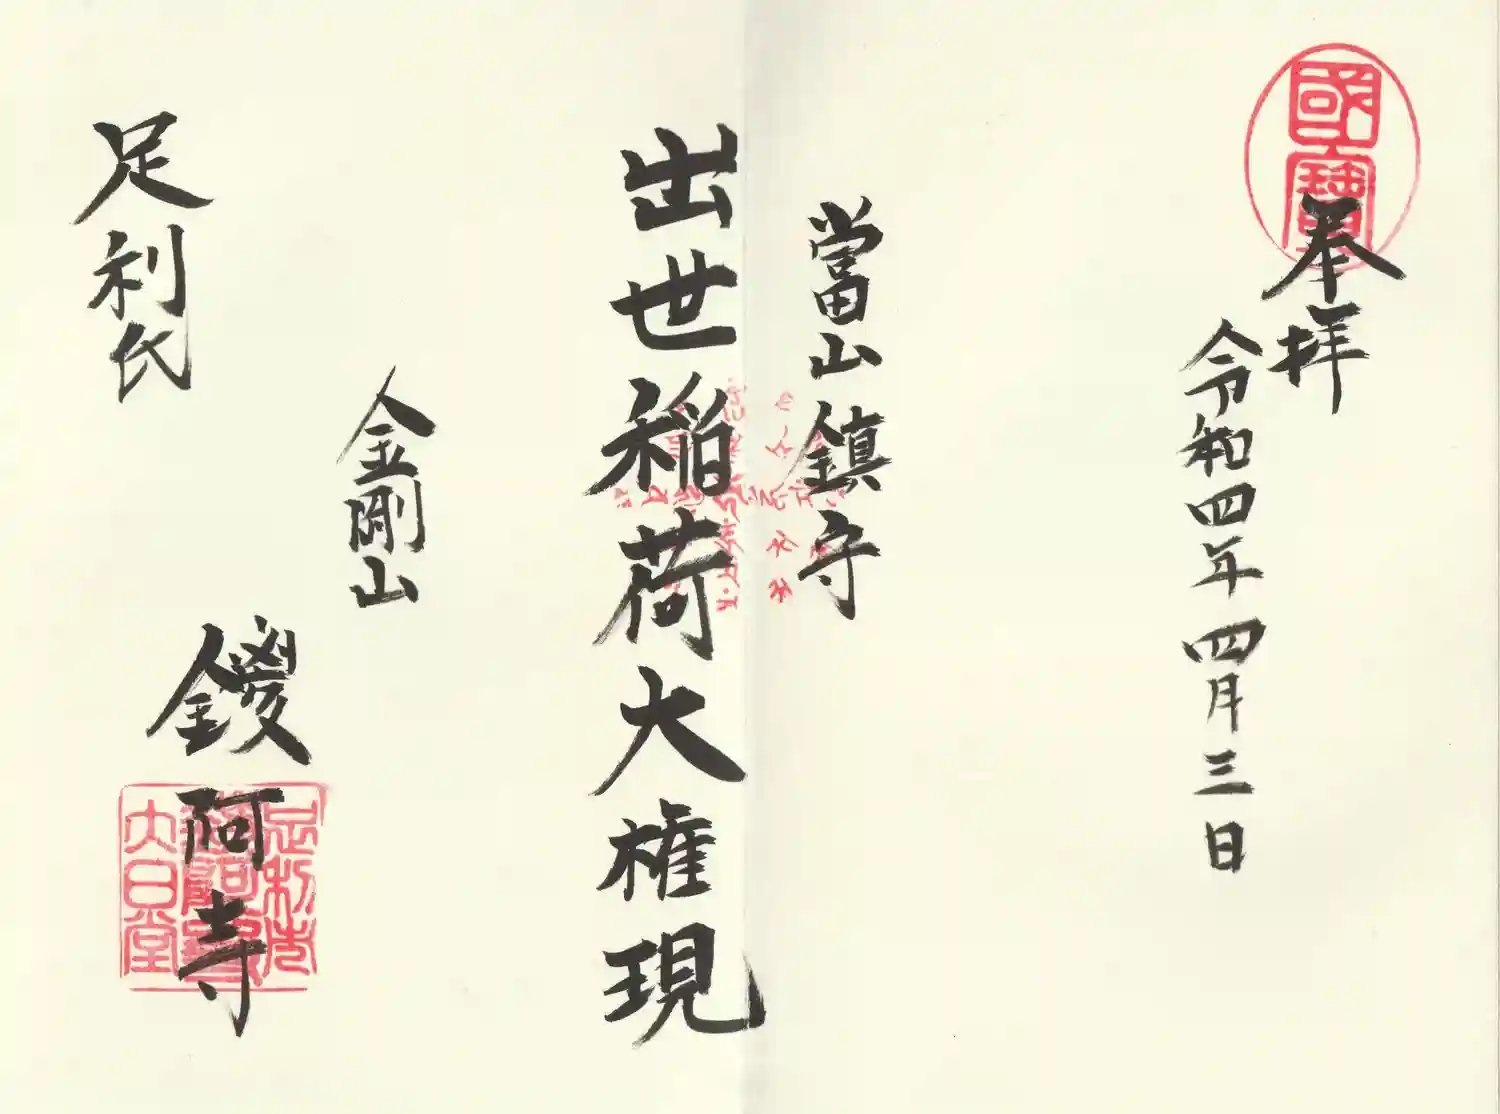 國寶
奉拝
令和四年四月三日
當山鎮守
出世稲荷大権現
金剛山
足利氏
鑁阿寺
足利氏
鑁阿寺
大日堂